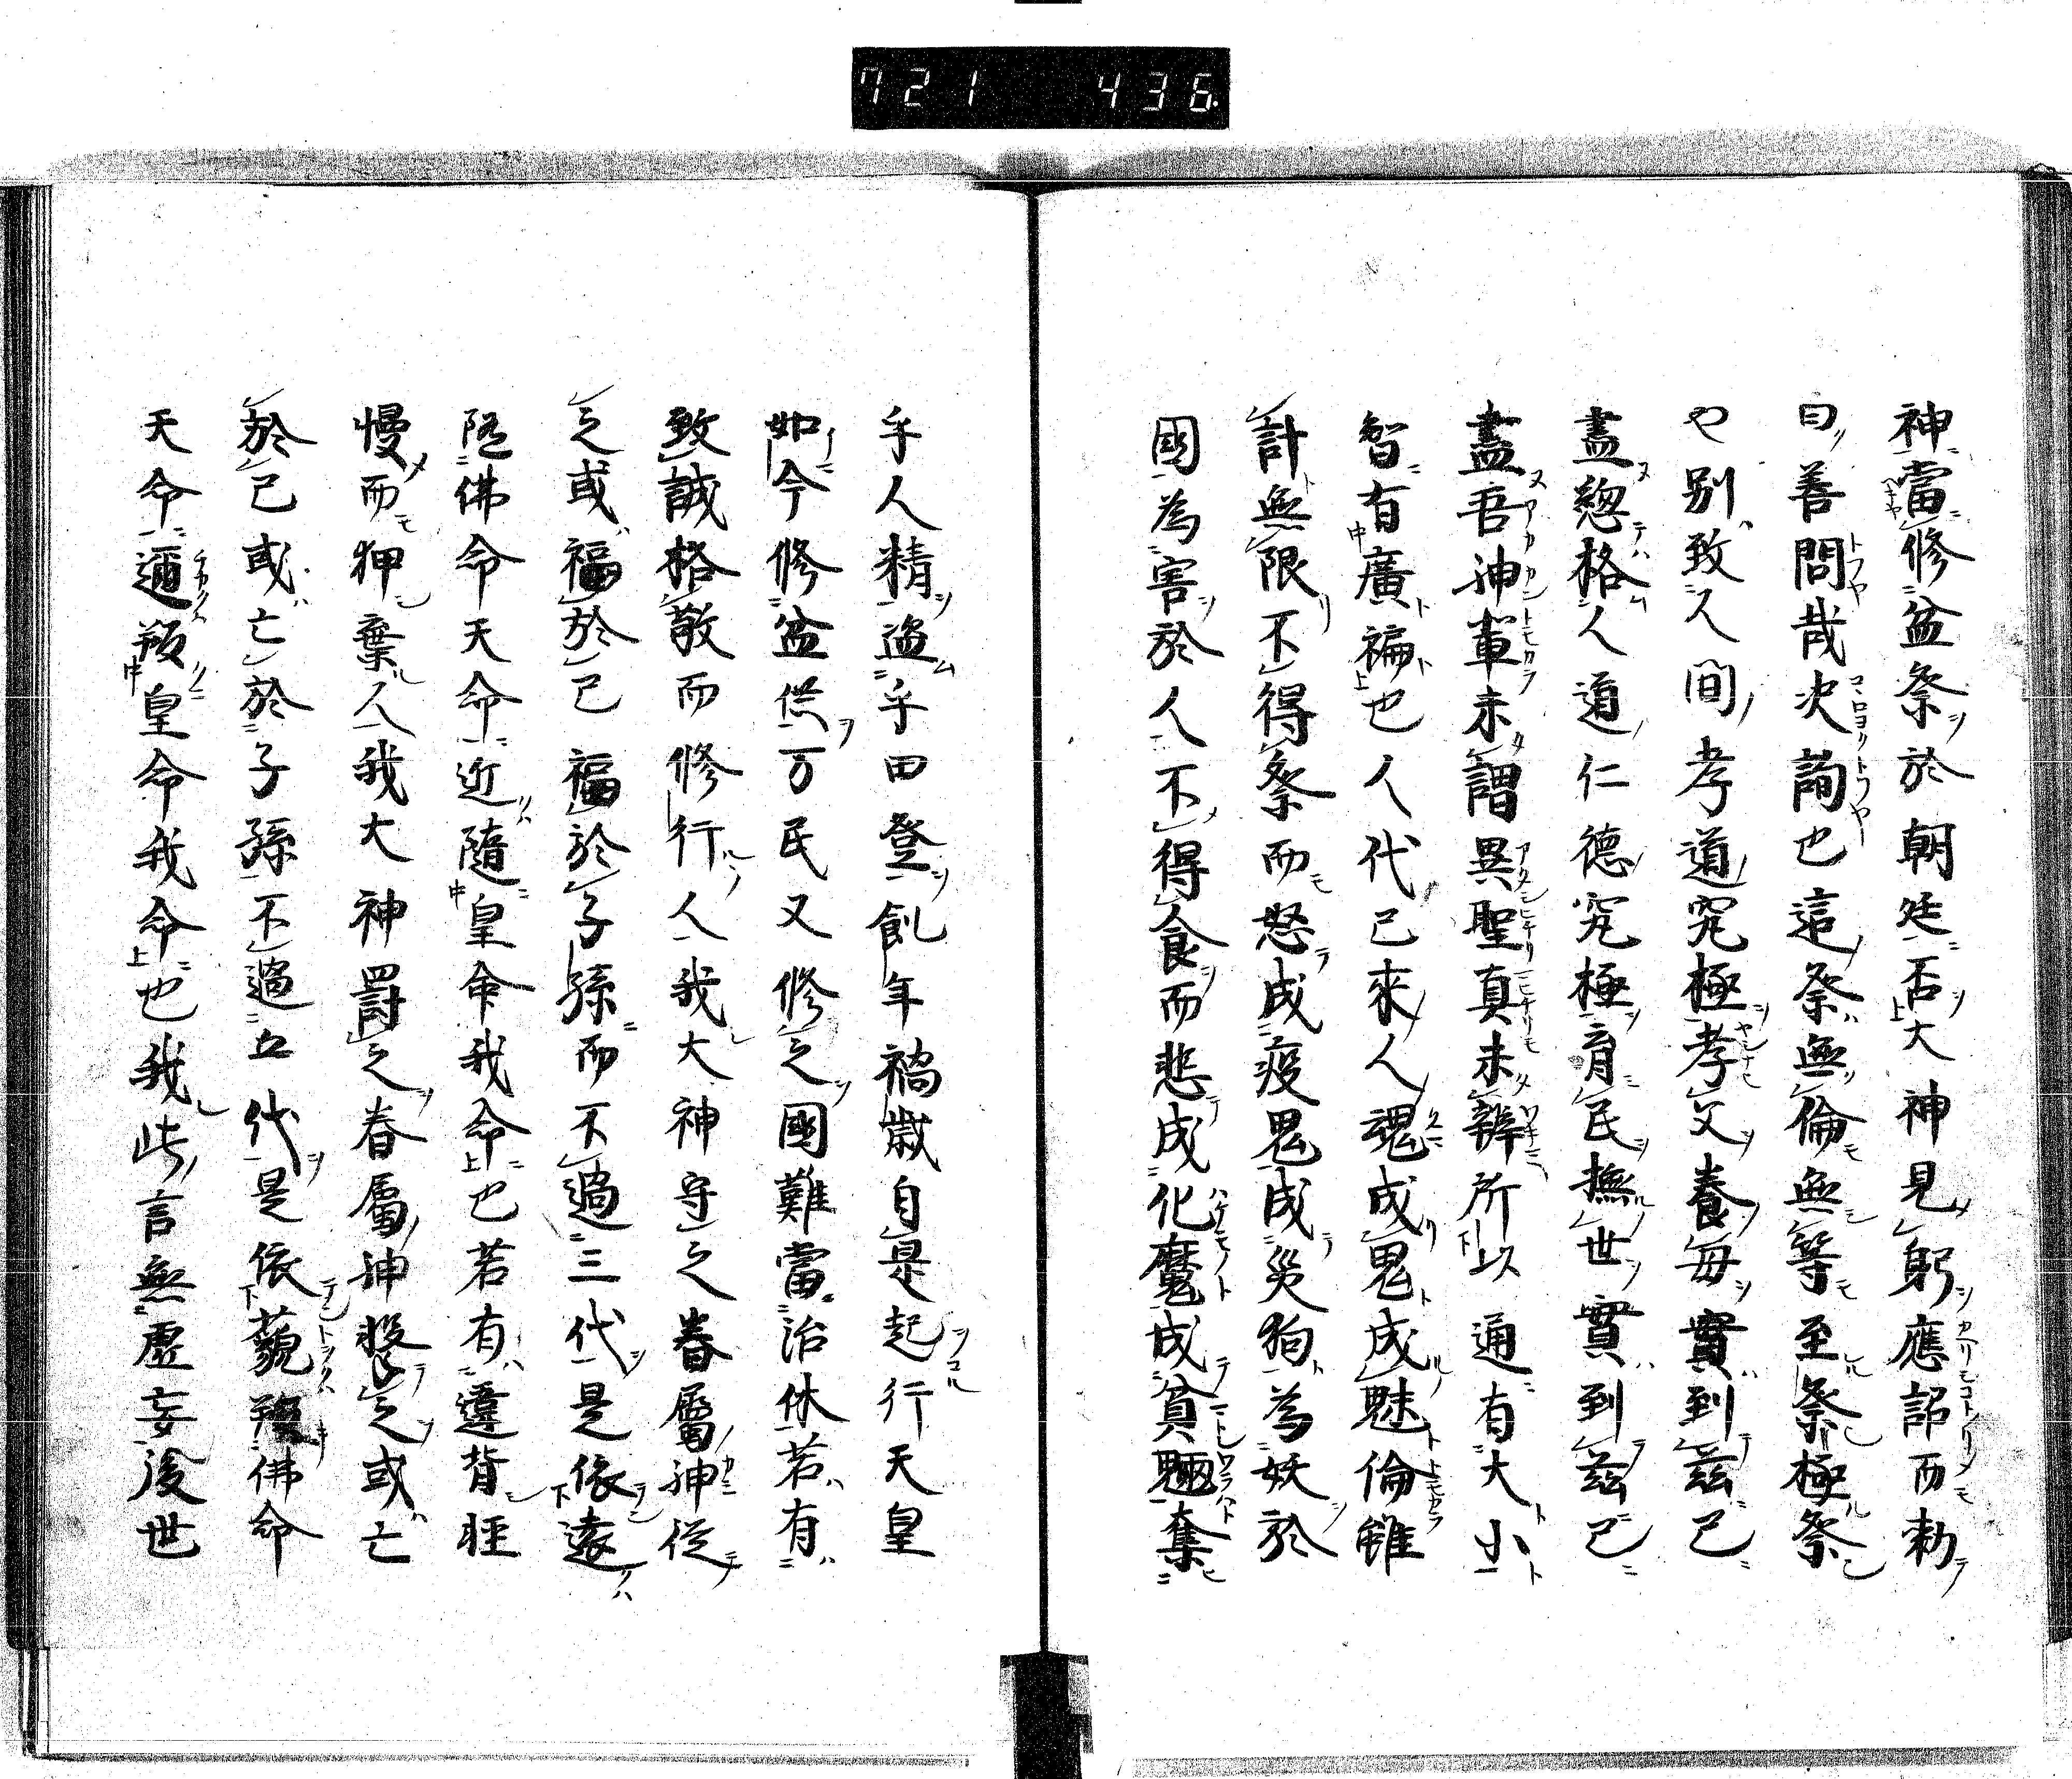 721 436
神當修盆祭於朝廷否大神見躬應詔而勅
曰善問哉次詢也這祭無倫無等至祭極祭
也別致人間孝道究極孝父養毎實到茲已
盡惣格人道仁德究極育民撫世實到茲已
盡吾神輩未謂異聖真未辨所以通有大小
智有廣褊也人代已來人魂成鬼成魅倫雖
計無限不得祭而怒成疫鬼成災狗為妖於
國為害於人不得食而悲成化魔成貧魎奪
乎人精盗乎田登飢年禍歳自是起行天皇
如今修盆供万民又修之國難當治休若有
致誠格敬而修行人我大神守之眷屬神從
之或福於己福於子孫而不過三代是依遠
隨佛命天命近隨皇命我命也若有違背
慢而狎棄人我大神罸之眷屬神投之或亡
於己或亡於子孫不過五代是依藐叛佛命
天命邇叛皇命我命也我此言無虚妄後世